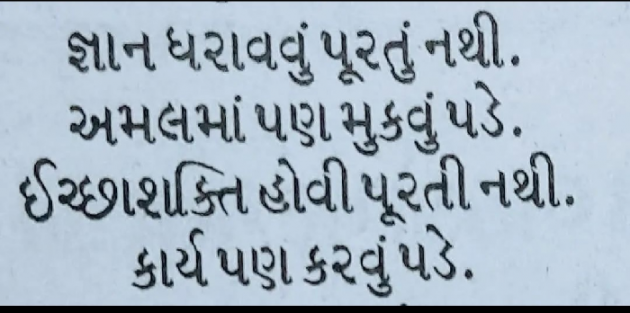 જ્ઞાન ધરાવવું પૂરતું નથી.
અમલમાં પણ મુકવું પડે.
ઈચ્છાશક્તિ હોવી પૂરતી નથી.
કાર્ય પણ કરવું પડે.